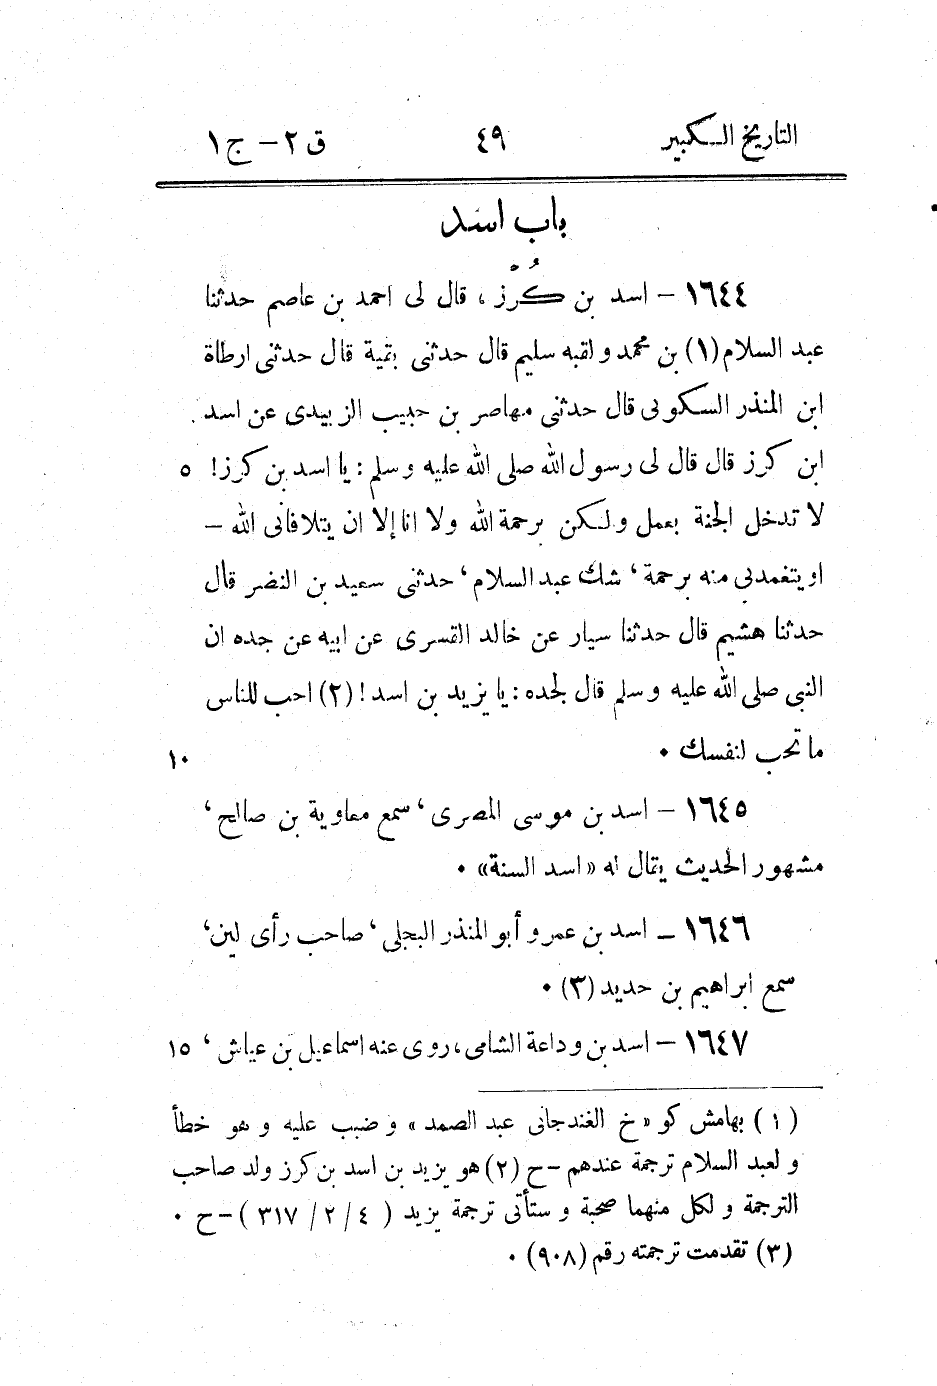 التاريخ الكبير ٤٩ ق ٢ - ج ١
باب اسد
١٦٤٤ - اسد بن كُرْز ، قال لى احمد بن عاصم حدثنا
عبد السلام (١) بن محمد و لقبه سليم قال حدثنى بقية قال حدثنى ارطاة
ابن المنذر السكونى قال حدثنى مهاصر بن حبيب الزبيدى عن اسد
ابن كرز قال قال لى رسول الله صلى الله عليه و سلم : يا اسد بن كرز! ٥
لا تدخل الجنة بعمل ولكن برحمة الله ولا انا إلا ان يتلافانى الله -
او يتغمدنى منه برحمة ، شك عبد السلام ، حدثنى سعيد بن النضر قال
حدثنا هشيم قال حدثنا سيار عن خالد القسرى عن ابيه عن جده ان
النبى صلى الله عليه و سلم قال لجده : يا يزيد بن اسد ! (٢) احب للناس
ما تحب لنفسك . ١٠
١٦٤٥ - اسد بن موسى المصرى ، سمع معاوية بن صالح ،
مشهور الحديث يقال له «اسد السنة» .
١٦٤٦ - اسد بن عمرو أبو المنذر البجلى ، صاحب رأى لين ،
سمع ابراهيم بن حديد (٣) .
١٦٤٧ - اسد بن وداعة الشامى ، روى عنه اسماعيل بن عياش ، ١٥
(١) بهامش كو « خ الغندجانى عبد الصمد » و ضبب عليه و هو خطأ
و لعبد السلام ترجمة عندهم - ح (٢) هو يزيد بن اسد بن كرز ولد صاحب
الترجمة و لكل منهما صحبة و ستأتى ترجمة يزيد ( ٤ / ٢ / ٣١٧ ) - ح .
(٣) تقدمت ترجمته رقم (٩٠٨) .